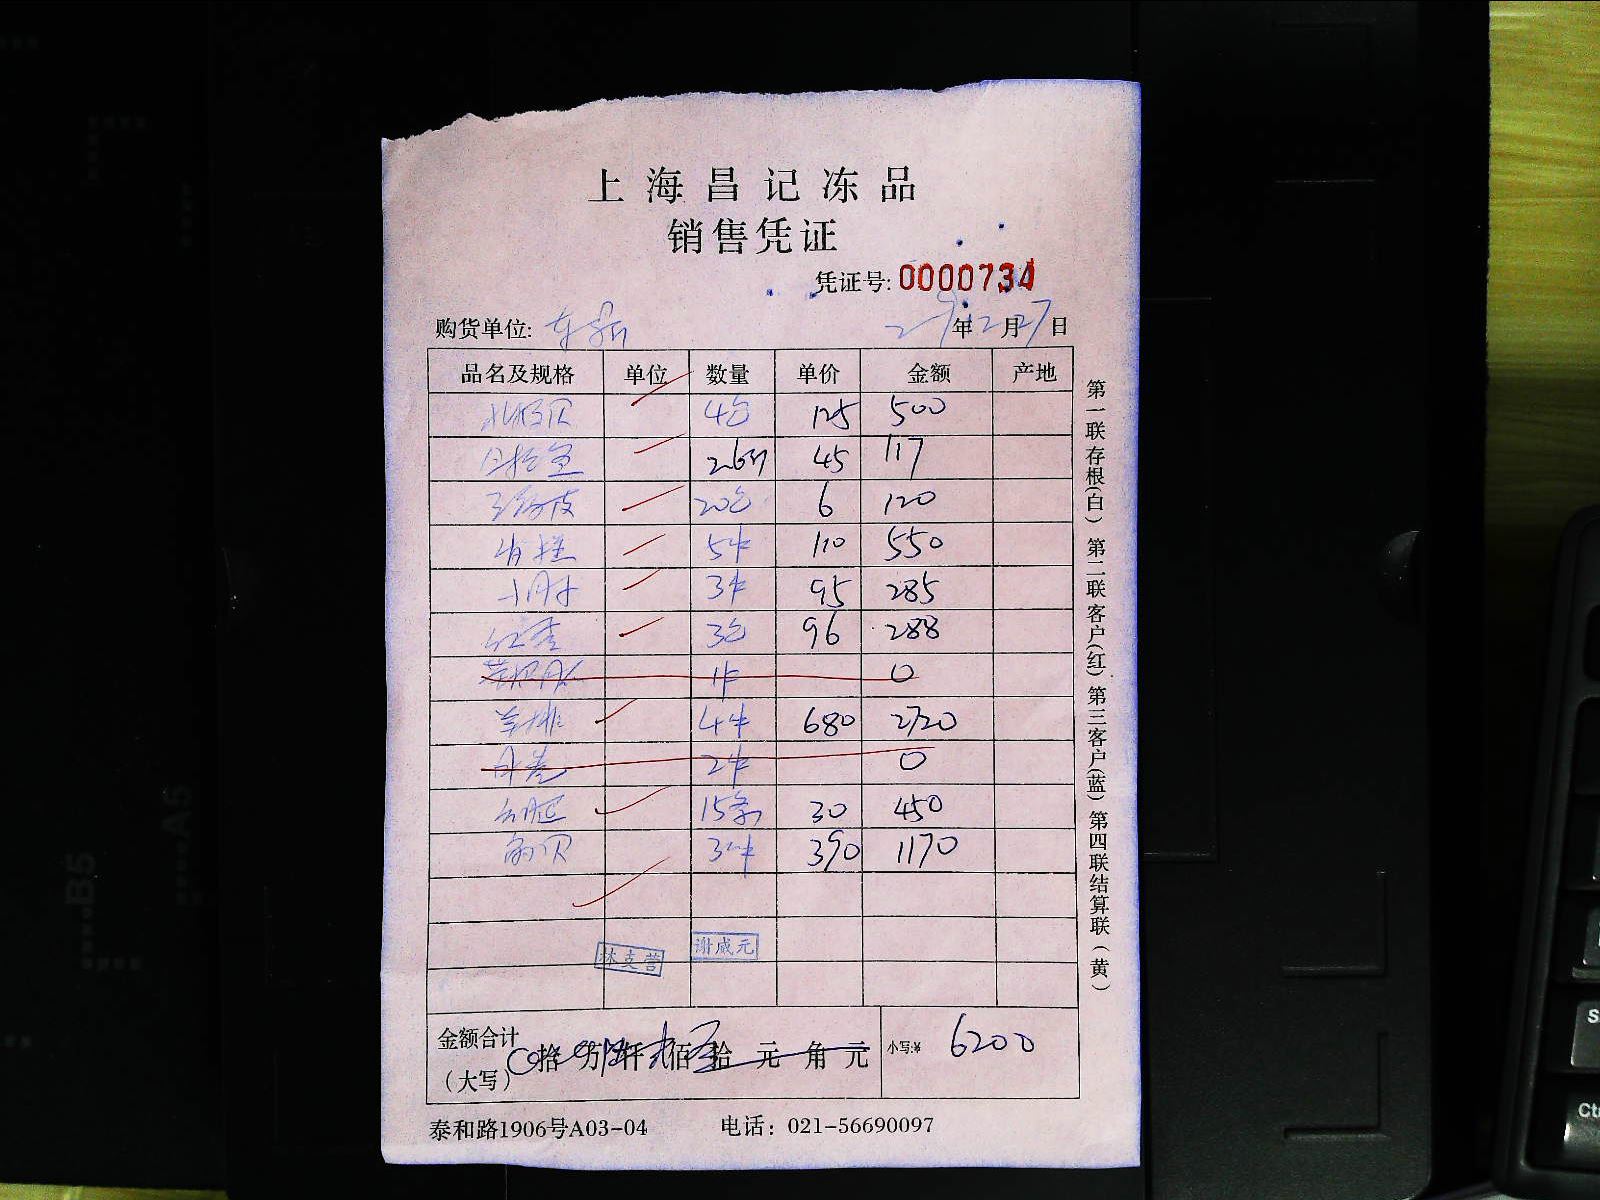 上海昌记冻品
销售凭证
凭证号: 0000734
购货单位: 年12月27日
品名及规格 单位 数量 单价 金额 产地
北极贝 4包 125 500
2.6斤 45 117
20包 6 120
5件 110 550
3件 95 285
3包 96 288
1件 0
羊排 4件 680 2720
2件 0
15条 30 450
3件 390 1170
林支营 谢成元
金额合计
(大写) 拾 万 仟 佰 拾 元 角 元 小写:¥ 6200
泰和路1906号A03-04 电话: 021-56690097
第一联存根(白) 第二联客户(红) 第三客户(蓝) 第四联结算联(黄)
B5
A5